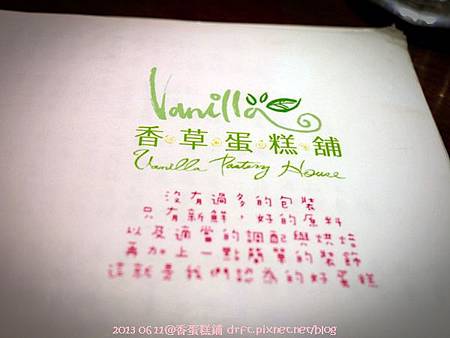 Vanilla
香草蛋糕舖
Vanilla Pastry House
沒有過多的包裝
只有新鮮，好的原料
以及適當的調配與烘焙
再加上一點簡單的裝飾
這就是我們認為的好蛋糕
2013 0611@香蛋糕鋪 drfc.pixnet.net/blog